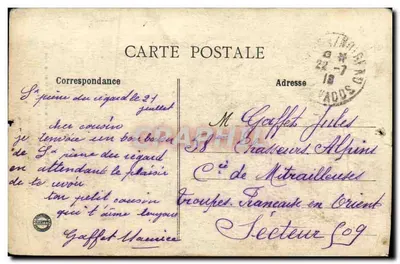 CARTE POSTALE
Correspondance
Adresse
22-7
18
St pierre du regard le 21
juillet
cher cousin
je tenvoie un
de St Pierre du regard
en attendant le plaisir
de te revoir
ton petit cousin
qui t'aime toujours
Gaffet Maurice
M Gaffet Jules
58 Chasseurs Alpins
Cie de Mitrailleuses
Troupes Francaise en Orient
Secteur 509